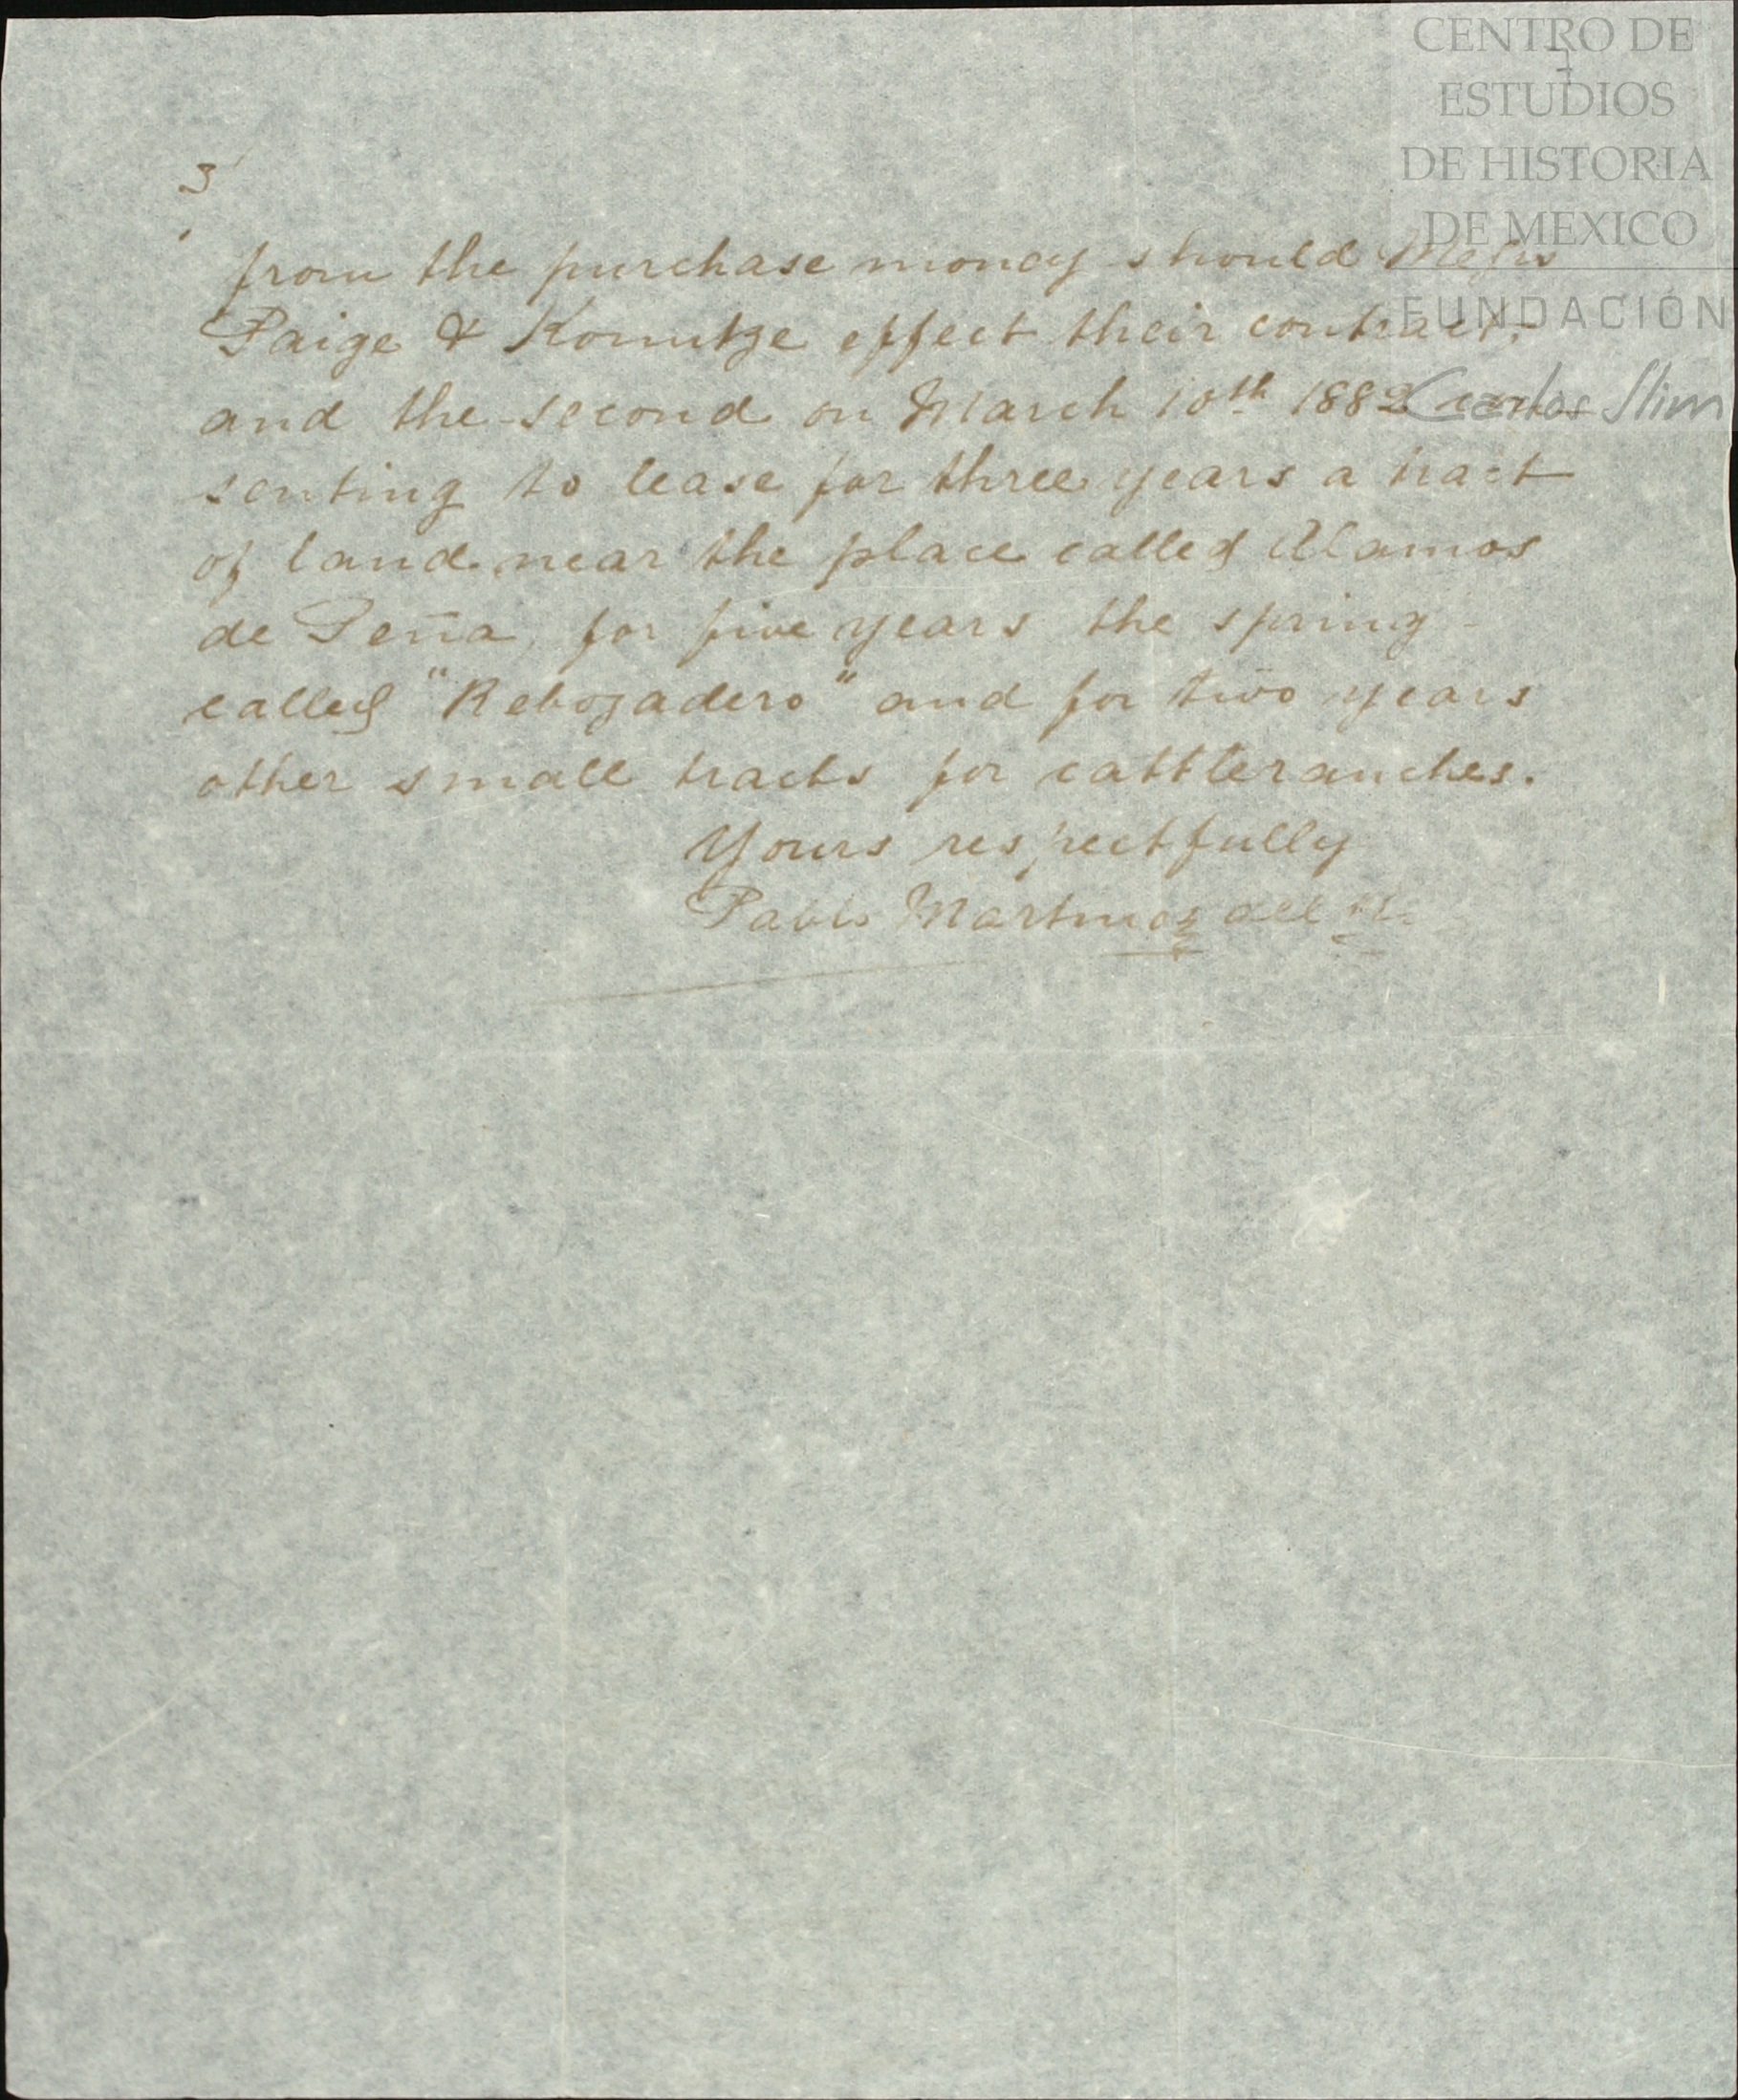 3
from the purchase money should Messrs
Paige & Konutze effect their contract;
and the second on March 10th 1882 con-
senting to lease for three years a tract
of land near the place called Alamos
de Peña, for five years the spring
called "Rebozadero" and for two years
other small tracts for cattleranches.
Yours respectfully
Pablo Martinez del R.
CENTRO DE
ESTUDIOS
DE HISTORIA
DE MEXICO
FUNDACIÓN
Carlos Slim